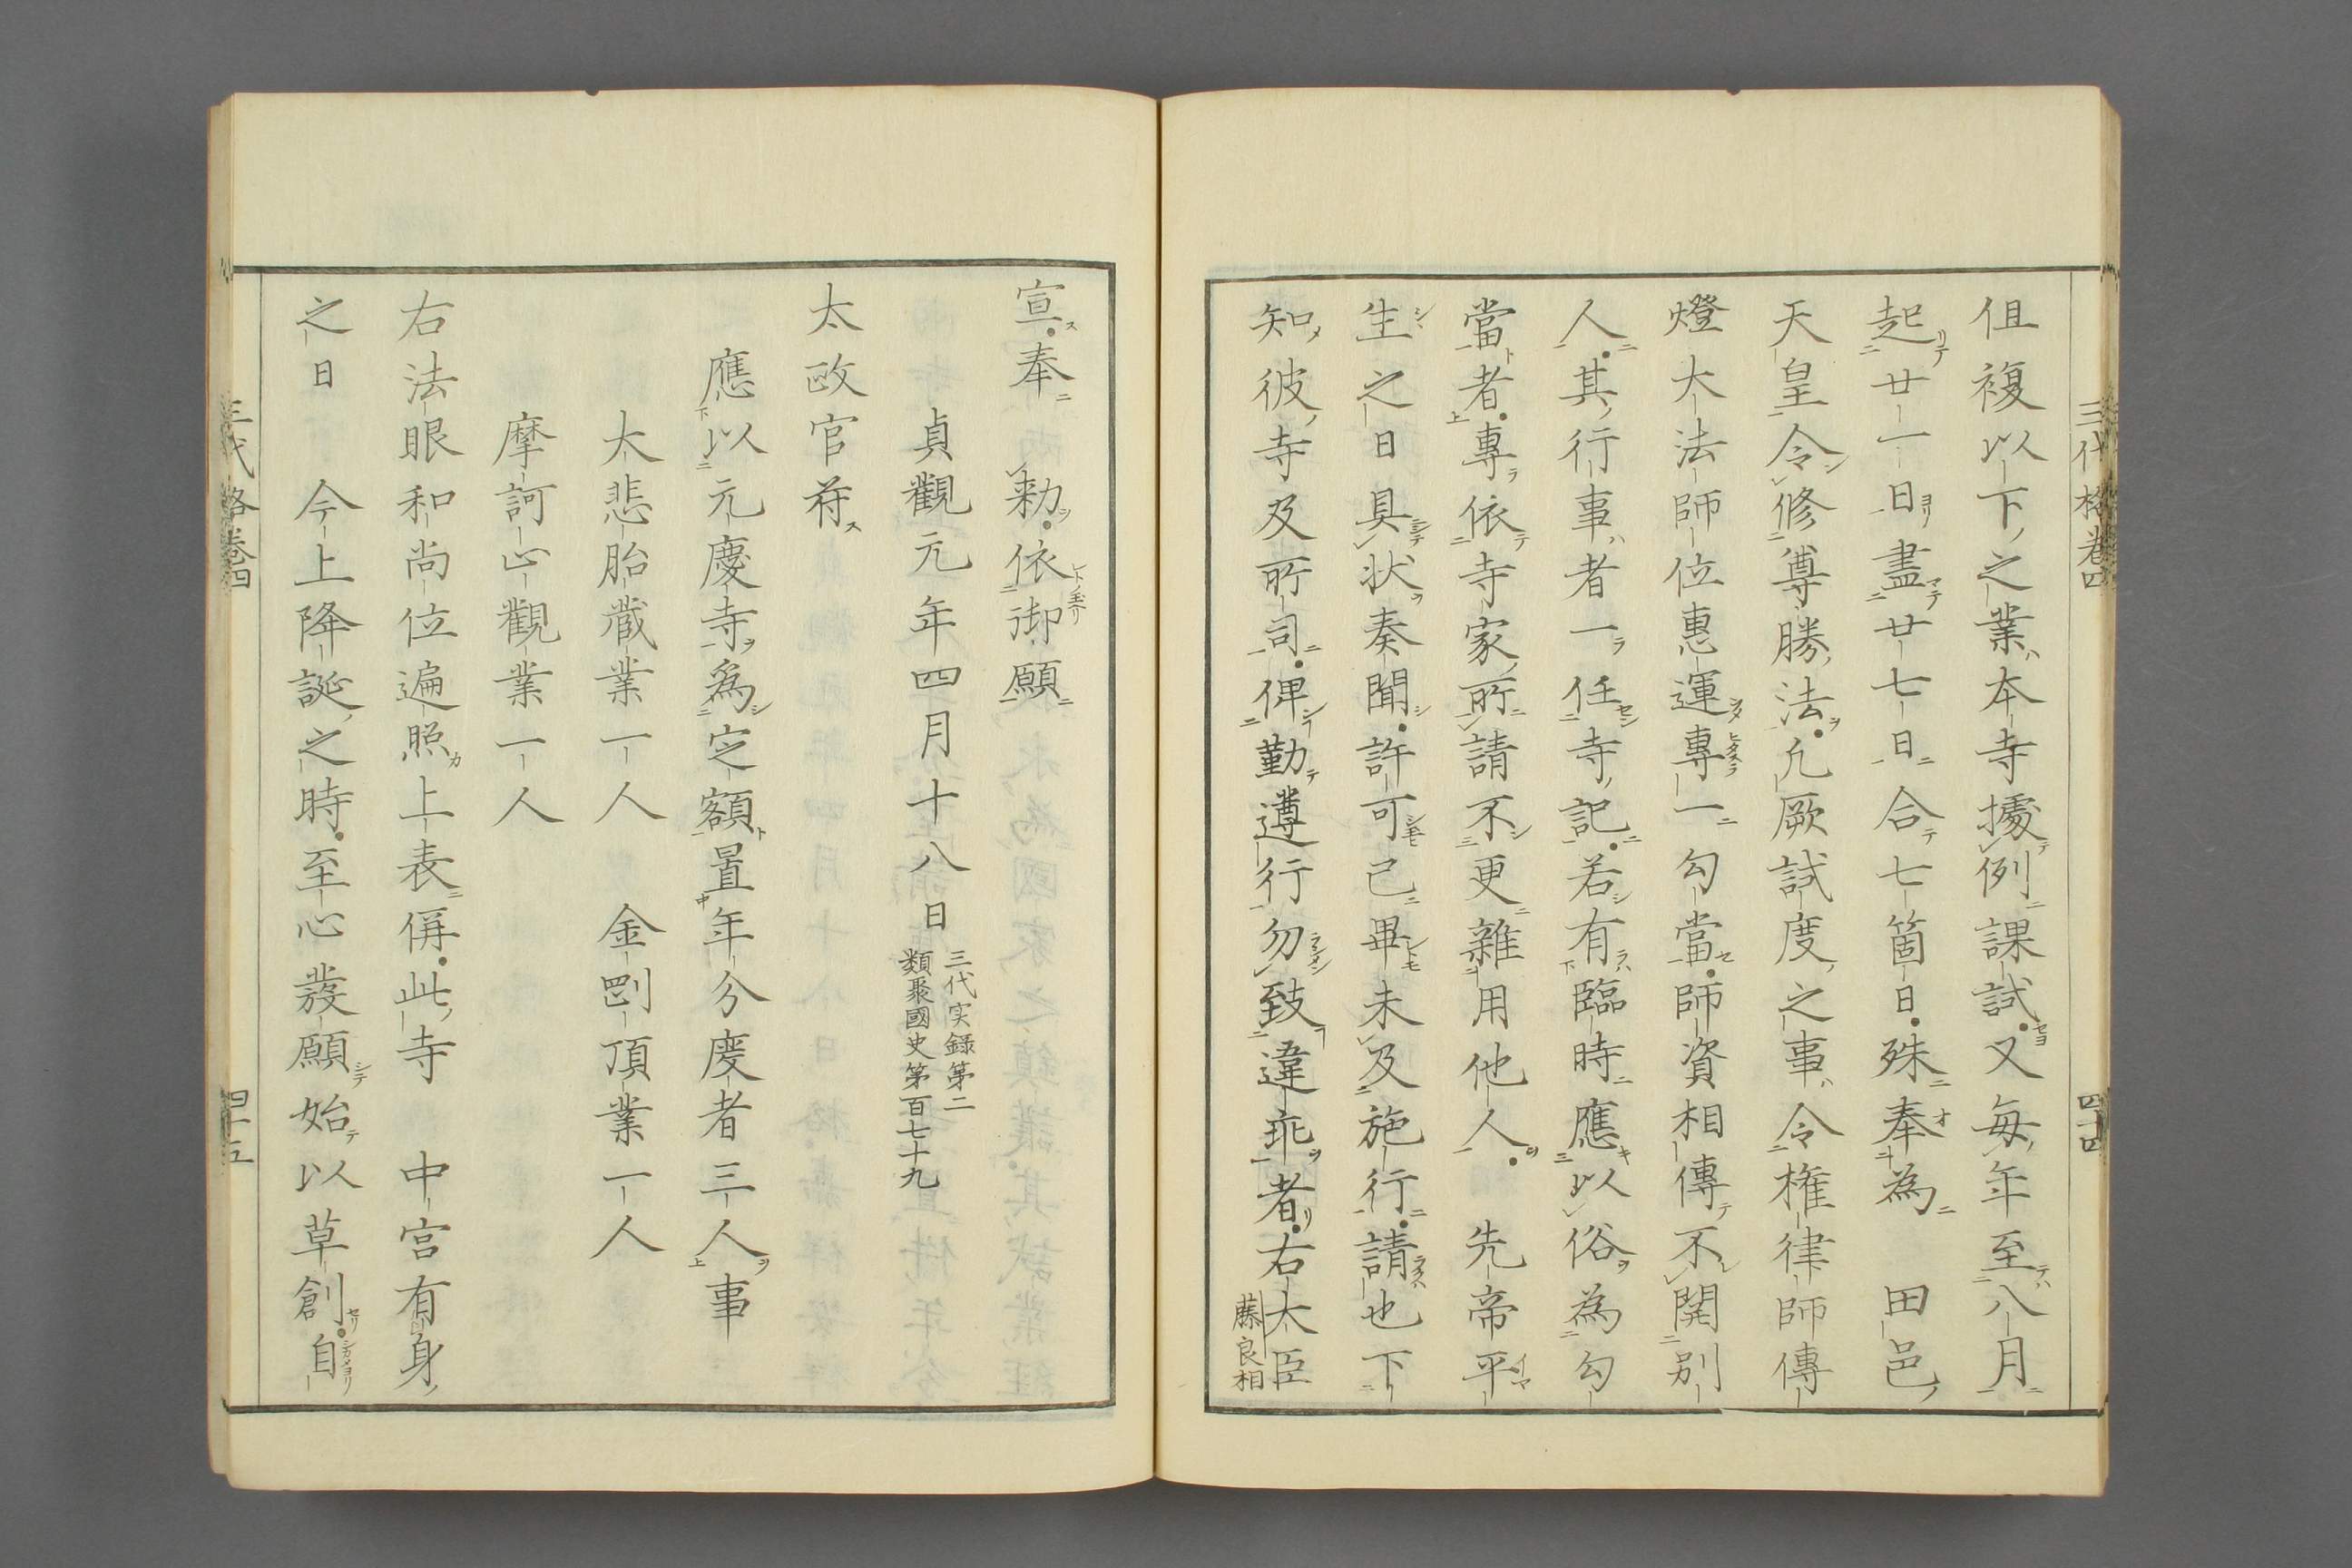 三代格卷四
四十四
伹複以下之業本寺據例課試又每年至八月
起廿一日盡廿七日合七箇日殊奉為　田邑
天皇令修尊勝法凢厥試度之事令権律師傳
燈大法師位惠運專一勾當師資相傳不関別
人其行事者一任寺記若有臨時應以俗為勾
當者專依寺家所請不更雜用他人　先帝平
生之日具状奏聞許可已畢未及施行請也下
知彼寺及所司俾勤遵行勿致違乖者右大臣
藤良相
宣奉　勑依御願
貞觀元年四月十八日
三代实録第二
類聚國史第百七十九
太政官符
應以元慶寺爲定額置年分度者三人事
大悲胎蔵業一人　金剛頂業一人
摩訶止觀業一人
右法眼和尚位遍照上表偁此寺　中宮有身
之日　今上降誕之時至心發願始以草創自
三代格卷四
四十五